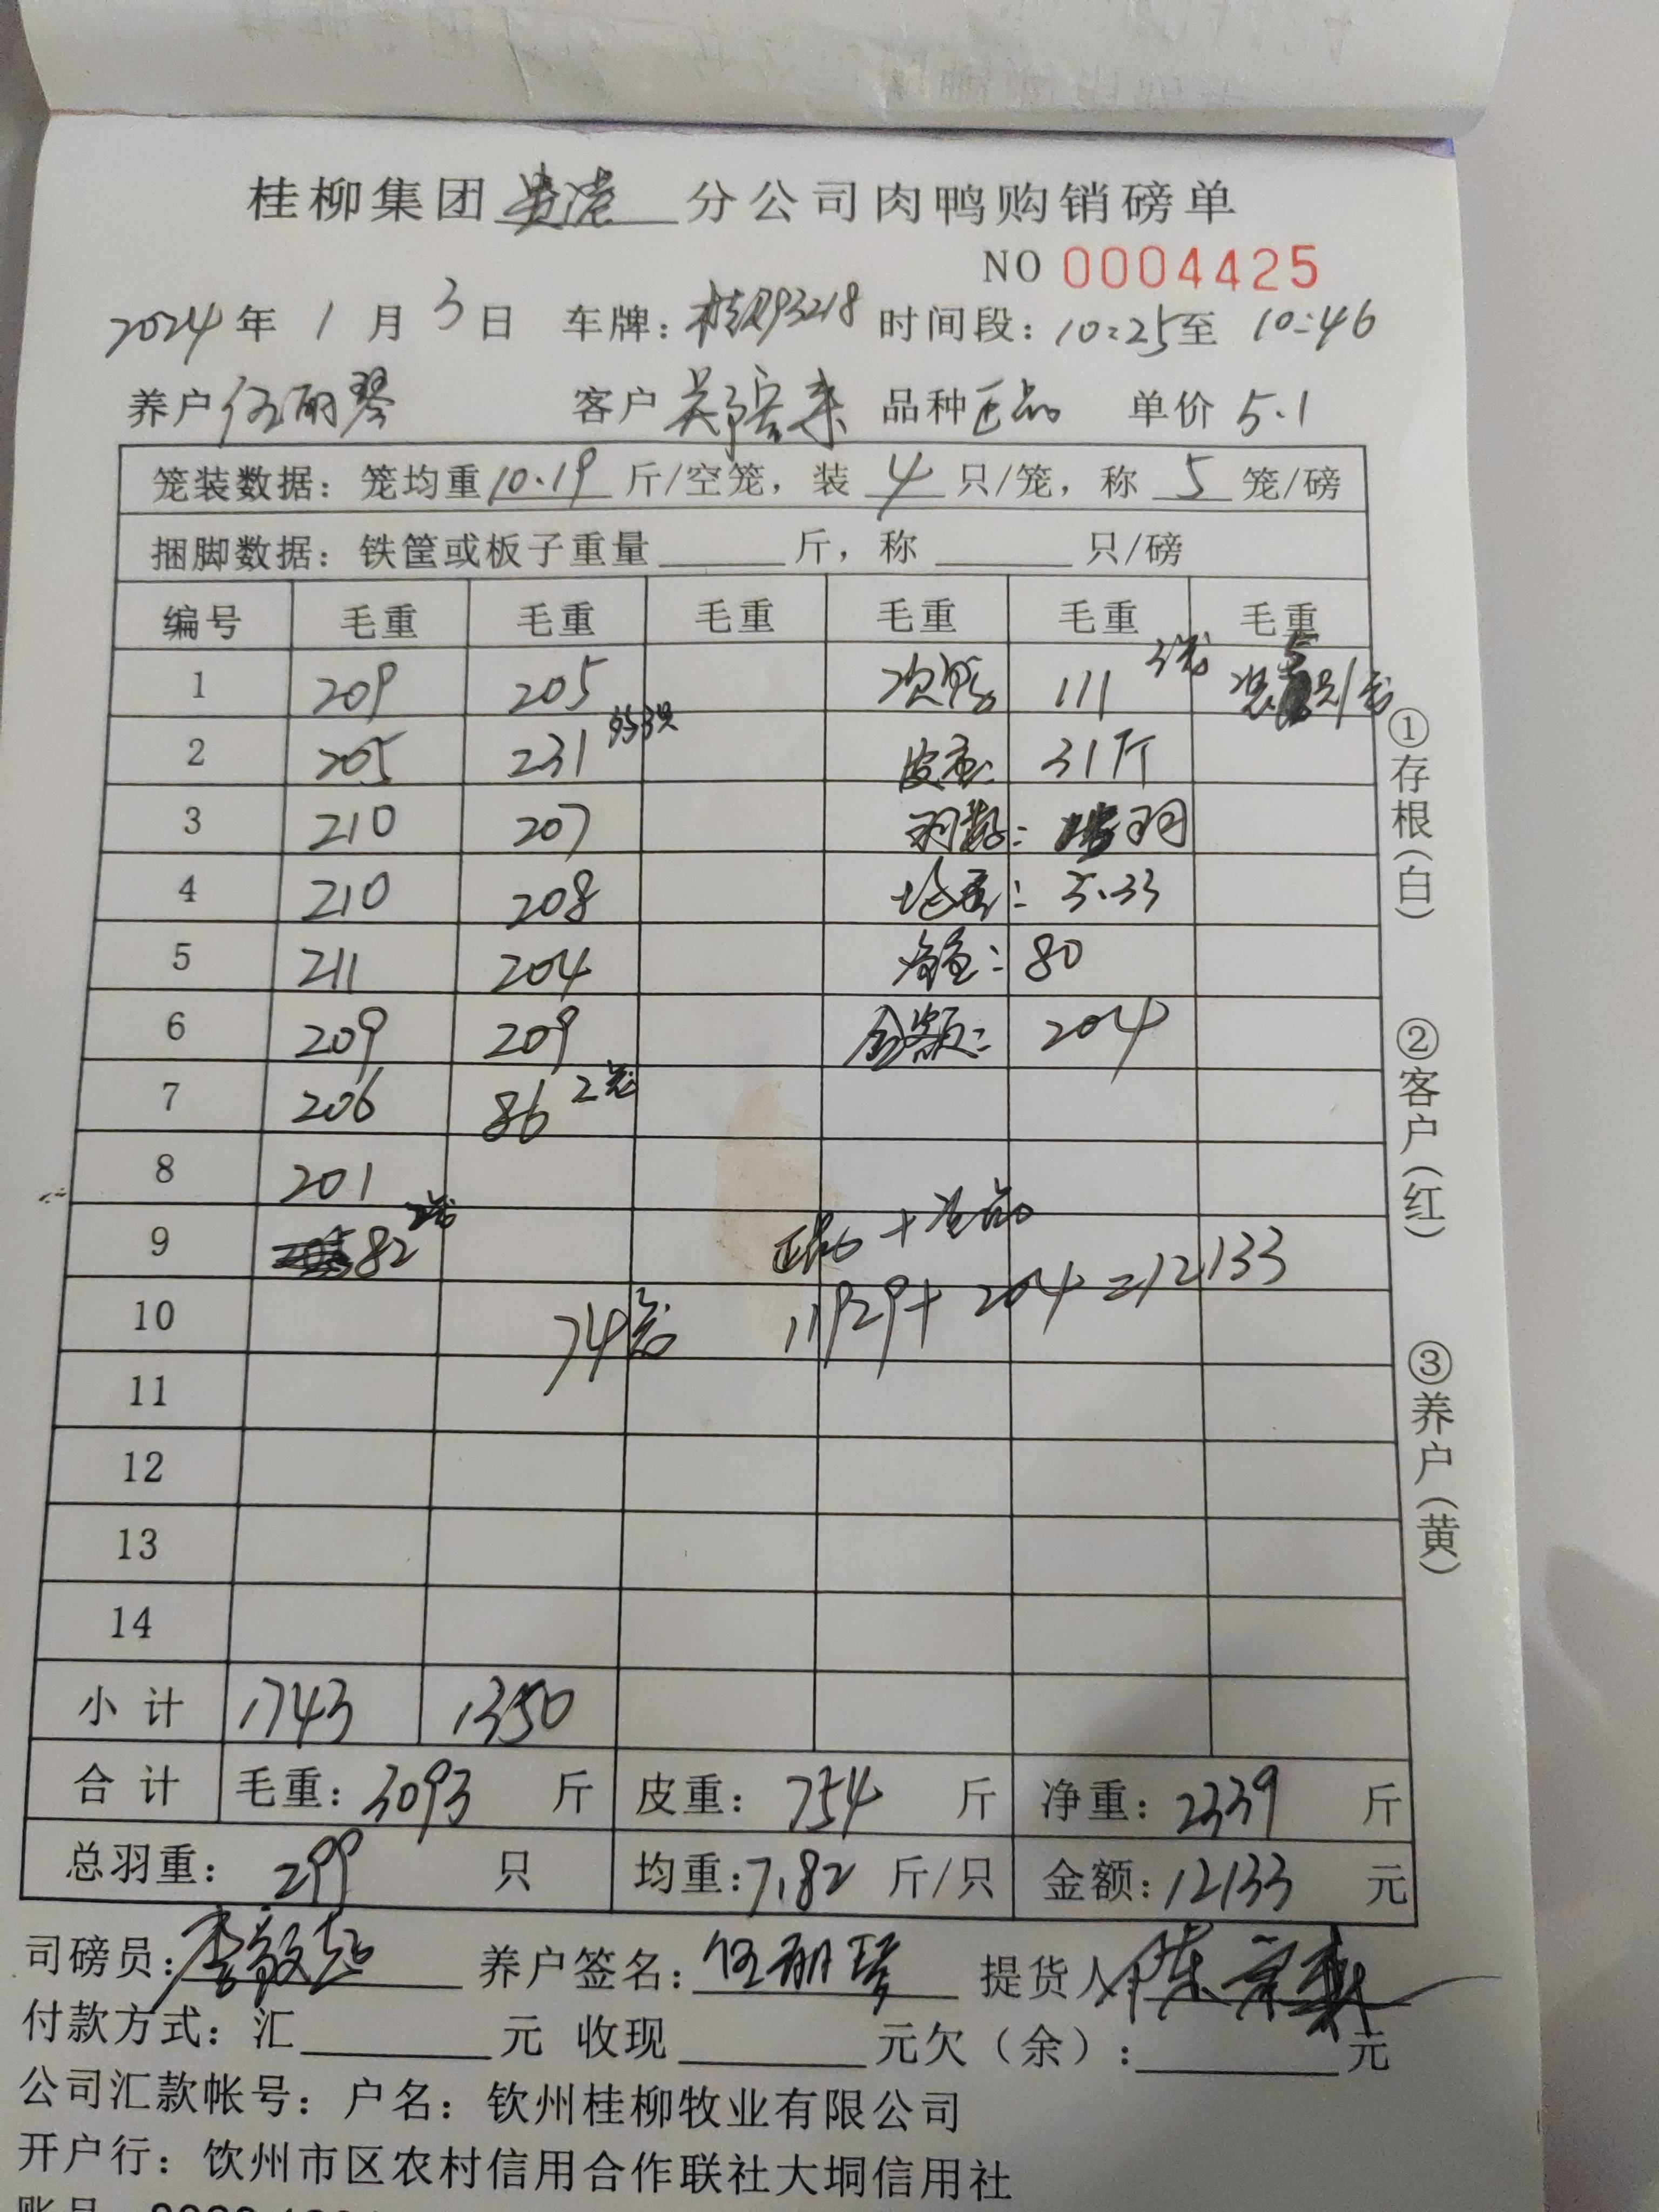 桂柳集团贵港分公司肉鸭购销磅单
NO 0004425
2024年 1月 3日 车牌：桂R93218 时间段：10:25至 10:46
养户 伍丽琴 客户 品种 正品 单价 5.1
笼装数据：笼均重 10.19 斤/空笼，装 4 只/笼，称 5 笼/磅
捆脚数据：铁筐或板子重量 斤，称 只/磅
编号 毛重 毛重 毛重 毛重 毛重 毛重
1 209 205 次鸭 111 3笼 装5只/笼
2 205 231 皮重: 31斤
3 210 207 羽数: 15羽
4 210 208 均重: 5.33
5 211 204 净重: 80
6 209 209 金额: 204
7 206 86 2笼
8 201
9 82 2笼 正品+次品
10 74笼 11929+204=12133
11
12
13
14
小计 1743 1350
合计 毛重：3093 斤 皮重：754 斤 净重：2339 斤
总羽重：299 只 均重：7.82 斤/只 金额：12133 元
司磅员：李敏超 养户签名：伍丽琴 提货人
付款方式：汇 元 收现 元欠（余）： 元
公司汇款帐号：户名：钦州桂柳牧业有限公司
开户行：饮州市区农村信用合作联社大垌信用社
①存根(白) ②客户(红) ③养户(黄)